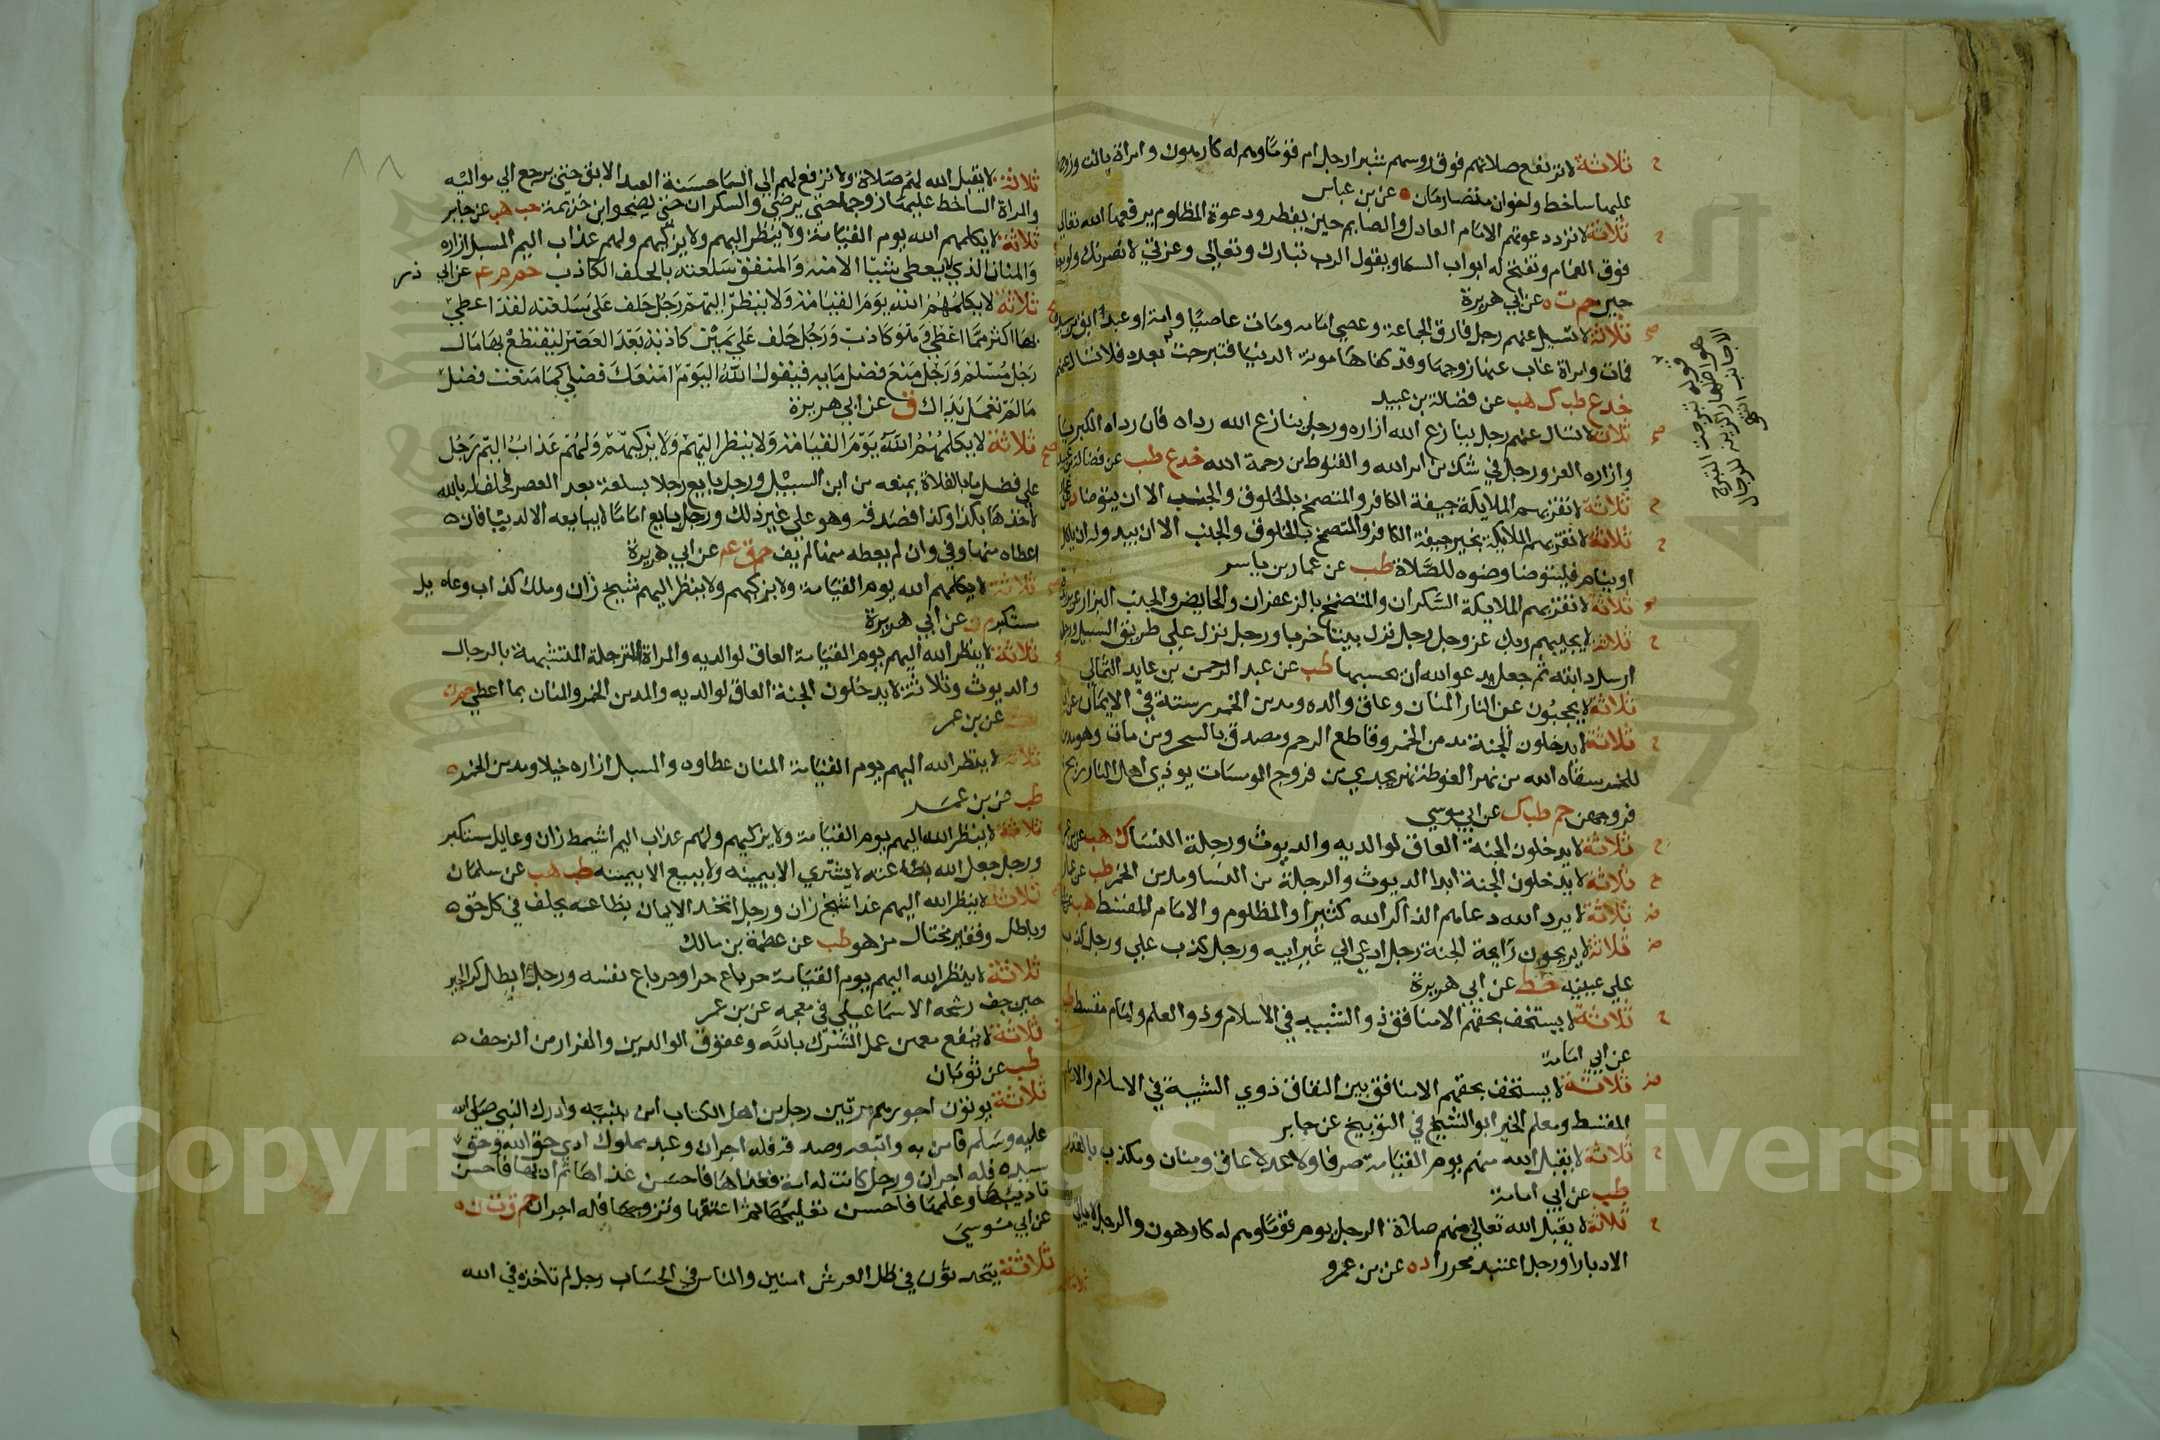 ثلاثة لا ترتفع صلاتهم فوق رؤسهم شبرا رجل ام قوما وهم له كارهون وامراة باتت وزوجها
عليها ساخط واخوان متصارمان ه عن بن عباس
ثلاثة لا ترد دعوتهم الامام العادل والصايم حين يفطر ودعوة المظلوم يرفعها الله تعالى
فوق الغمام وتفتح له ابواب السما ويقول الرب تبارك وتعالى وعزتي لانصرنك ولو بعد
حين حم ت ه عن ابي هريرة
ثلاثة لا تسيل عنهم رجل فارق الجماعة وعصى امامه ومات عاصيا وامة او عبد ابق من سيده
فمات وامراة غاب عنها زوجها وقد كفاها مونة الدنيا فتبرجت بعده فلا تسال عنهم
خد ع طب ك هب عن فضالة بن عبيد
ثلاثة لا تسال عنهم رجل ينازع الله ازاره ورجل ينازع الله رداه فان رداه الكبريا
وازاره العز ورجل في شك من امر الله والقنوط من رحمة الله خد ع طب عن فضالة بن عبيد
ثلاثة لا تقربهم الملايكة جيفة الكافر والمتضمخ بالخلوق والجنب الا ان يتوضا
ثلاثة لا تقربهم الملايكة بخير جيفة الكافر والمتضمخ بالخلوق والجنب الا ان يبدو له ان ياكل
او ينام فليتوضا وضوه للصلاة طب عن عمار بن ياسر
ثلاثة لا تقربهم الملايكة السكران والمتضمخ بالزعفران والحايض والجنب البزار عن بريدة
ثلاثة لا يجيبهم ربك عز وجل رجل نزل بيتا خربا ورجل نزل على طريق السبيل ورجل
ارسل دابته ثم جعل يدعو الله ان يحبسها طب عن عبد الرحمن بن عايد الثمالي
ثلاثة لا يحجبون عن النار المنان وعاق والده ومدمن الخمر رستة في الايمان عن
ثلاثة لا يدخلون الجنة مدمن الخمر وقاطع الرحم ومصدق بالسحر ومن مات وهو مدمن
للخمر سقاه الله من نهر الغوطة نهر يجري من فروج المومسات يوذي اهل النار ريح
فروجهن حم طب ك عن ابي موسى
ثلاثة لا يدخلون الجنة العاق لوالديه والديوث ورجلة النسا ك هب عن بن عمر
ثلاثة لا يدخلون الجنة ابدا الديوث والرجلة من النسا ومدمن الخمر طب عن عمار
ثلاثة لا يرد الله دعاهم الذاكر الله كثيرا والمظلوم والامام المقسط هب
ثلاثة لا يريحون رايحة الجنة رجل ادعى الى غير ابيه ورجل كذب علي ورجل كذب
على عينيه خط عن ابي هريرة
ثلاثة لا يستخف بحقهم الا منافق ذو الشيبة في الاسلام وذو العلم وامام مقسط طب
عن ابي امامة
ثلاثة لا يستخف بحقهم الا منافق بين النفاق ذوي الشيبة في الاسلام والامام
المقسط ومعلم الخير ابو الشيخ في التوبيخ عن جابر
ثلاثة لا يقبل الله منهم يوم القيامة صرفا ولا عدلا عاق ومنان ومكذب بالقدر
طب عن ابي امامة
ثلاثة لا يقبل الله تعالى منهم صلاة الرجل يوم قوما وهم له كارهون والرجل لا ياتي
الا دبارا ورجل اعتبد محررا د ه عن بن عمرو
قوله تبرجت التبرج
هو اظهار الزينة للرجال
الاجانب انتهى
ثلاثة لا يقبل الله لهم صلاة ولا ترفع لهم الى السما حسنة العبد الابق حتى يرجع الى مواليه
والمراة الساخط عليها زوجها حتى يرضى والسكران حتى يصحو ابن خزيمة حب هب عن جابر
ثلاثة لا يكلمهم الله يوم القيامة ولا ينظر اليهم ولا يزكيهم ولهم عذاب اليم المسبل ازاره
والمنان الذي لا يعطي شيا الا منه والمنفق سلعته بالحلف الكاذب حم م عم عن ابي ذر
ثلاثة لا يكلمهم الله يوم القيامة ولا ينظر اليهم رجل حلف على سلعته لقد اعطي
بها اكثر مما اعطي وهو كاذب ورجل حلف على يمين كاذبة بعد العصر ليقتطع بها مال
رجل مسلم ورجل منع فضل مايه فيقول الله اليوم امنعك فضلي كما منعت فضل
ما لم تعمل يداك ق عن ابي هريرة
ثلاثة لا يكلمهم الله يوم القيامة ولا ينظر اليهم ولا يزكيهم ولهم عذاب اليم رجل
على فضل ما بالفلاة يمنعه من ابن السبيل ورجل بايع رجلا بسلعة بعد العصر فحلف له بالله
لاخذها بكذا وكذا فصدقه وهو على غير ذلك ورجل بايع اماما لا يبايعه الا لدنيا فان
اعطاه منها وفى وان لم يعطه منها لم يف حم ق عم عن ابي هريرة
ثلاثة لا يكلمهم الله يوم القيامة ولا يزكيهم ولا ينظر اليهم شيخ زان وملك كذاب وعايل
مستكبر م ن عن ابي هريرة
ثلاثة لا ينظر الله اليهم يوم القيامة العاق لوالديه والمراة المترجلة المتشبهة بالرجال
والديوث وثلاثة لا يدخلون الجنة العاق لوالديه والمدمن الخمر والمنان بما اعطى حم ن
عن بن عمر
ثلاثة لا ينظر الله اليهم يوم القيامة المنان عطاوه والمسبل ازاره خيلا ومدمن الخمر
طب عن بن عمر
ثلاثة لا ينظر الله اليهم يوم القيامة ولا يزكيهم ولهم عذاب اليم اشيمط زان وعايل مستكبر
ورجل جعل الله بضاعته لا يشتري الا بيمينه ولا يبيع الا بيمينه طب هب عن سلمان
ثلاثة لا ينظر الله اليهم غدا شيخ زان ورجل اتخذ الايمان بضاعة يحلف في كل حق
وباطل وفقير مختال مزهو طب عن عصمة بن مالك
ثلاثة لا ينظر الله اليهم يوم القيامة حر باع حرا وحر باع نفسه ورجل ابطل كرا اجير
حين جف رشحه الاسماعيلي في معجمه عن بن عمر
ثلاثة لا ينفع معهن عمل الشرك بالله وعقوق الوالدين والفرار من الزحف
طب عن ثوبان
ثلاثة يوتون اجورهم مرتين رجل من اهل الكتاب امن بنبيه وادرك النبي صلى الله
عليه وسلم فامن به واتبعه وصدقه فله اجران وعبد مملوك ادى حق الله وحق
سيده فله اجران ورجل كانت له امة فغذاها فاحسن غذاها ثم ادبها فاحسن
تاديبها وعلمها فاحسن تعليمها ثم اعتقها وتزوجها فله اجران حم ق ت ن ه
عن ابي موسى
ثلاثة يتحدثون في ظل العرش امنين والناس في الحساب رجل لم تاخذه في الله
Copyright © King Saud University